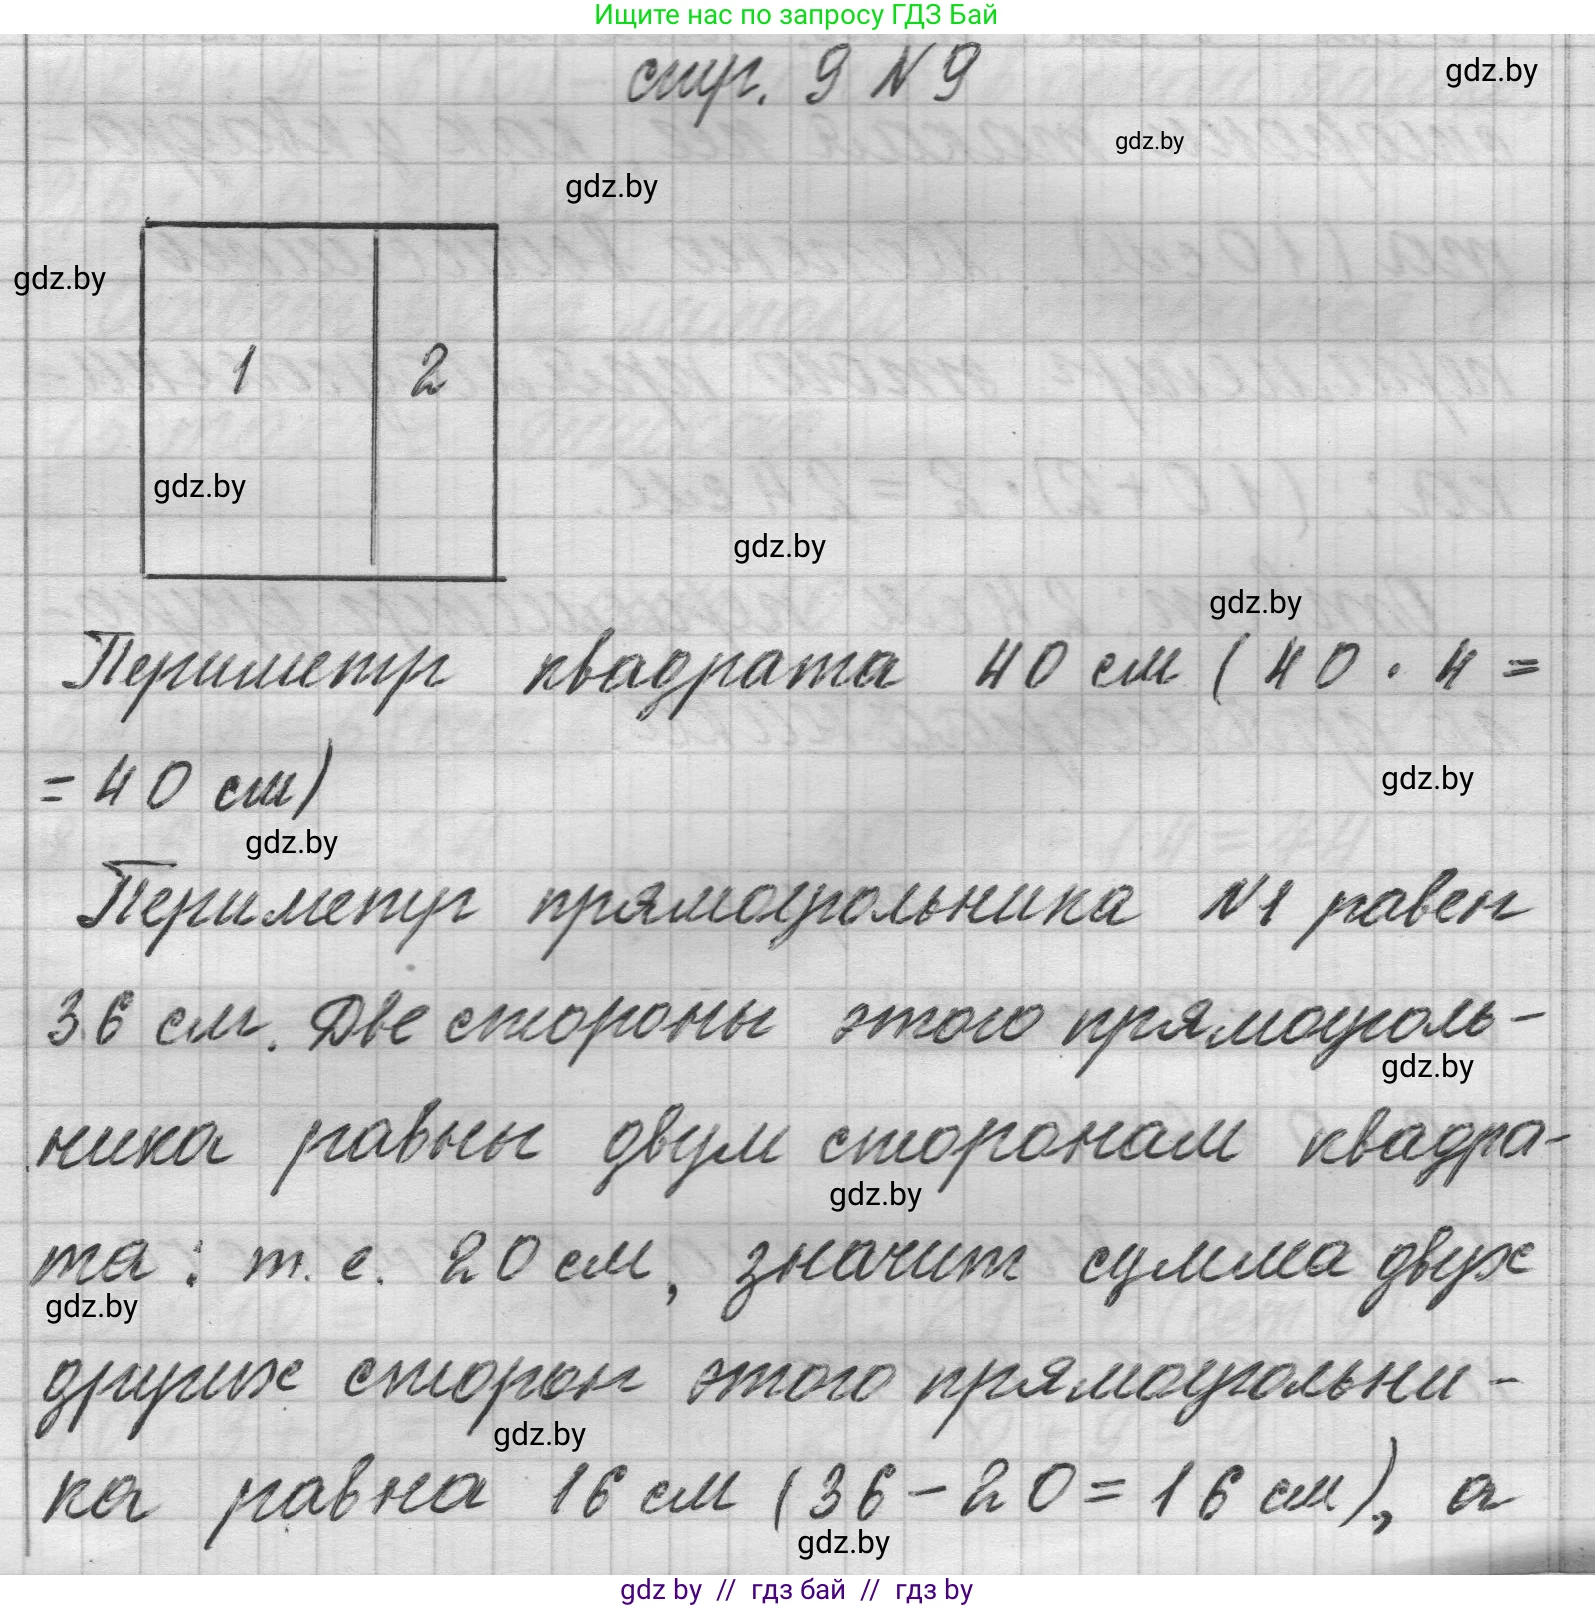 Ищите нас по запросу ГДЗ Бай
стр. 9 N 9
gdz.by
gdz.by
gdz.by
gdz.by
1 2
gdz.by
gdz.by
gdz.by
Периметр квадрата 40 см (40 · 4 =
= 40 см)
gdz.by
gdz.by
Периметр прямоугольника N1 равен
36 см. Две стороны этого прямоуголь-
gdz.by
ника равны двум сторонам квадра-
gdz.by
та: т. е. 20 см, значит сумма двух
gdz.by
других сторон этого прямоугольни-
gdz.by
ка равна 16 см (36 - 20 = 16 см), а
gdz.by
gdz by // гдз бай // гдз by